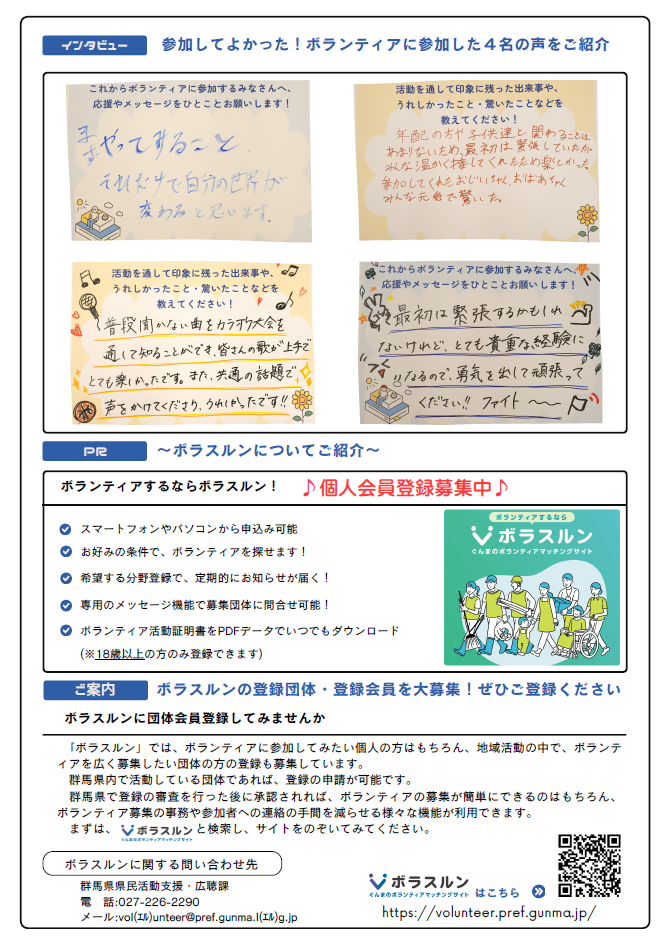 インタビュー
参加してよかった！ボランティアに参加した４名の声をご紹介
これからボランティアに参加するみなさんへ、
応援やメッセージをひとことお願いします！
まずやってすること、
それだけで自分の世界が
変わると思います。
活動を通して印象に残った出来事や、
うれしかったこと・驚いたことなどを
教えてください！
年配の方や子供達と関わることは
あまりないため、最初は緊張していたが
みんな温かく接してくれたため楽しかった。
参加してくれたおじいちゃん、おばあちゃん
みんな元気で驚いた。
活動を通して印象に残った出来事や、
うれしかったこと・驚いたことなどを
教えてください！
普段聞かない曲をカラオケ大会を
通して知ることができ、皆さんの歌が上手で
とても楽しかったです。また、共通の話題で
声をかけてくださり、うれしかったです!!
これからボランティアに参加するみなさんへ、
応援やメッセージをひとことお願いします！
最初は緊張するかもしれ
ないけれど、とても貴重な経験に
なるので、勇気を出して頑張って
ください!! ファイト〜〜
PR
～ボラスルンについてご紹介～
ボランティアするならボラスルン！
♪個人会員登録募集中♪
スマートフォンやパソコンから申込み可能
お好みの条件で、ボランティアを探せます！
希望する分野登録で、定期的にお知らせが届く！
専用のメッセージ機能で募集団体に問合せ可能！
ボランティア活動証明書をPDFデータでいつでもダウンロード
(※18歳以上の方のみ登録できます)
ボランティアするなら
ボラスルン
ぐんまのボランティアマッチングサイト
ご案内
ボラスルンの登録団体・登録会員を大募集！ぜひご登録ください
ボラスルンに団体会員登録してみませんか
「ボラスルン」では、ボランティアに参加してみたい個人の方はもちろん、地域活動の中で、ボランテ
ィアを広く募集したい団体の方の登録も募集しています。
群馬県内で活動している団体であれば、登録の申請が可能です。
群馬県で登録の審査を行った後に承認されれば、ボランティアの募集が簡単にできるのはもちろん、
ボランティア募集の事務や参加者への連絡の手間を減らせる様々な機能が利用できます。
まずは、ボラスルンと検索し、サイトをのぞいてみてください。
ぐんまのボランティアマッチングサイト
ボラスルンに関する問い合わせ先
群馬県県民活動支援・広聴課
電　話:027-226-2290
メール:vol(ｴﾙ)unteer@pref.gunma.l(ｴﾙ)g.jp
ボラスルン
ぐんまのボランティアマッチングサイト
はこちら
https://volunteer.pref.gunma.jp/